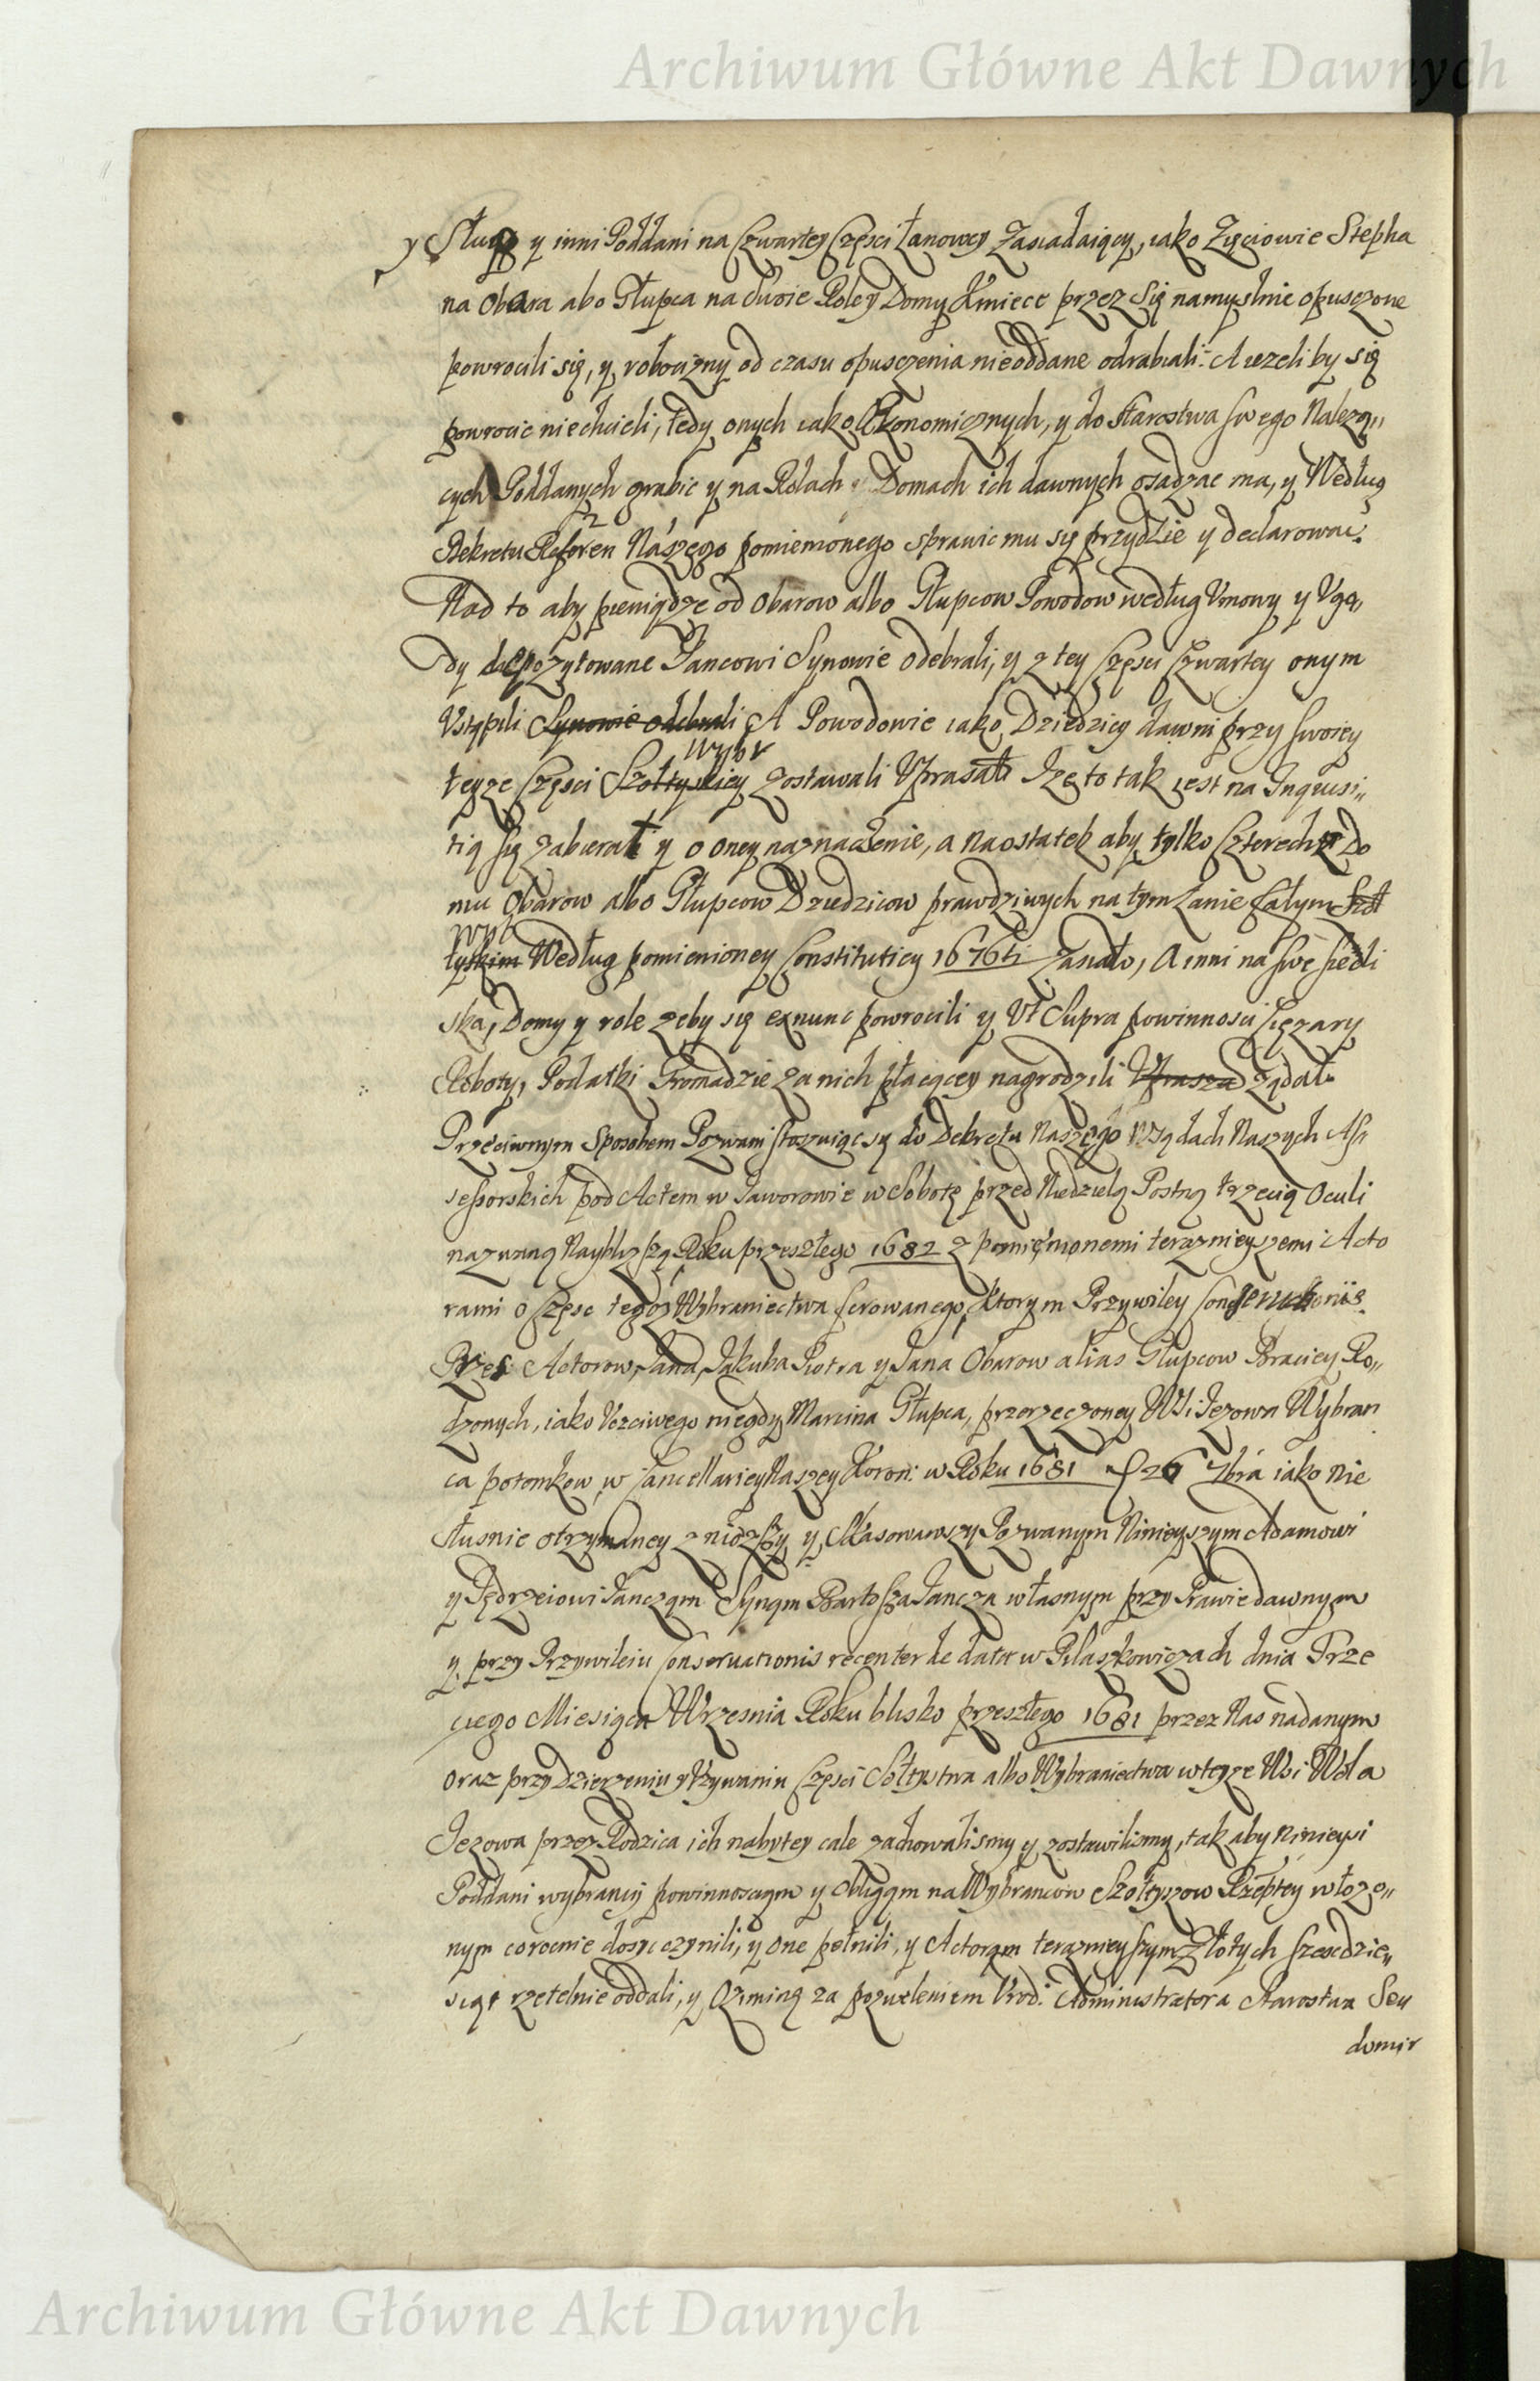 Archiwum Główne Akt Dawnych
y Sług y inni Poddani na Czwartey Częsci Łanowey Zasiadaiący, iako Zięciowie Stepha
na Obara abo Głupca na dwoie Roley Domy Kmiece przez Się namyslnie opusczone
powrocili się, y robocizny od czasu opusczenia nieoddane odrabiali: A iezeli by się
powrocic niechcieli, tedy onych iako Ekonomicznych, y do Starostwa swego Nalezą„
cych Poddanych grabic y na Rolach y Domach ich dawnych osadzac ma, y Według
Dekretu Referen Naszego pomienionego sprawic mu się przydzie y declarowac.
Nad to aby pieniądze od Obarow albo Głupcow Powodow według Umowy y Ugo„
dy depozytowane Jancowi Synowie odebrali, y z tey Częsci Czwartey onym
Ustąpili Synowie odebrali A Powodowie iako Dziedzicy dawni przy swoiey
wybr
teyze Częsci Szołtyskiey zostawali Upraszał Ize to tak iest na Inquisi„
tią się zabierał y o oney naznaczenie, a naostatek aby tylko Czterech z Do
mu Obarow albo Głupcow Dziedzicow prawdziwych na tym Łanie Całym Szoł
wyb
tyskim Według pomienioney Constituticy 1676ti zasiadło, A inni na swe siedli
ska, Domy y role zeby się exnunc powrocili y Ut Supra powinnosci Cięzary
Roboty, Podatki Gromadzie za nich płacącey nagrodzili Uprasza ządał.
Przeciwnym Sposobem Pozwani stosuiąc się do Dekretu Naszego w Sądach Naszych Ass
sessorskich pod Actem w Jaworowie w Sobotę przed Niedzielą Postną trzecią Oculi
nazwaną Nayblizszą Roku przeszłego 1682 z pomienionemi teraznieyszemi Acto
rami o Częsc tegoz Wybraniectwa ferowanego, Ktorym Przywiley Conservationis
Przez Actorow, Jana, Jakuba Piotra y Jana Obarow alias Głupcow Braciey Ro„
dzonych, iako Uczciwego niegdy Marcina Głupca, przerzeczoney Wsi Jezowa Wybran
ca potomkow, w Cancellariey Naszey Koron: w Roku 1681 26 7bra iako nie
słusnie otrzymaney zniozszy y Skasowawszy Pozwanym Ninieyszym Adamowi
y Jędrzeiowi Janczom Synom Bartosza Jancza własnym przy Prawie dawnym
y przy Przywileiu Conservationis recenter de data w Pilaszkowiczach dnia Trze
ciego Miesiąca Wrzesnia Roku blisko przeszłego 1681 przez Nas nadanym
oraz przy Dzierzeniu y Uzywaniu Częsci Sołtystwa albo Wybraniectwa w teyze Wsi Wola
Jezowa przez Rodzica ich nabytey cale zachowalismy y zostawilismy, tak aby nınieysi
Poddani wybrancy powinnosciom y Obligom na Wybrancow Szołtysow Rzeptey włozo„
nym corocznie dosyc czynili, y one pełnili, y Actorom teraznieyszym Złotych szescdzie„
siąt rzetelnie oddali, y Oziminą za pozwoleniem Urod: Administratora Starostwa Sen
domir
Archiwum Główne Akt Dawnych